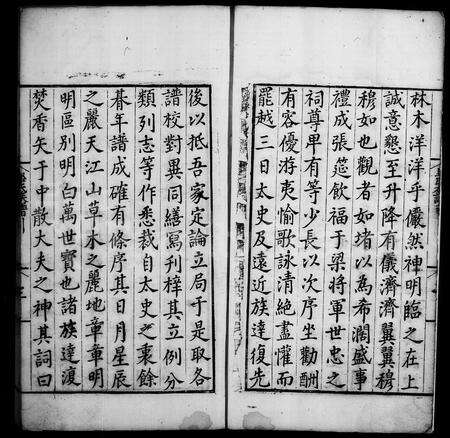 林木洋洋乎儼然神明臨之在上
誠意懇至升降有儀濟濟翼翼穆
穆如也觀者如堵以為希濶盛事
禮成張筵飲福于梁將軍世忠之
祠尊卑有等少長以次序坐勸酬
有容優游夷愉歌詠清絶盡懽而
罷越三日太史及遠近族達復先
後以抵吾家定論立局于是取各
譜校對異同繕寫刋梓其立例分
類列志等作悉裁自太史之稾餘
朞年譜成確有條序其日月星辰
之麗天江山草木之麗地章章明
明區别明白萬世寶也諸族達復
焚香矢于中散大夫之神其詞曰